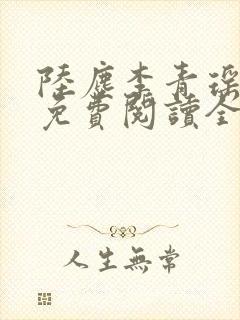 陸塵李青瑤
免費閱讀全
人生無常